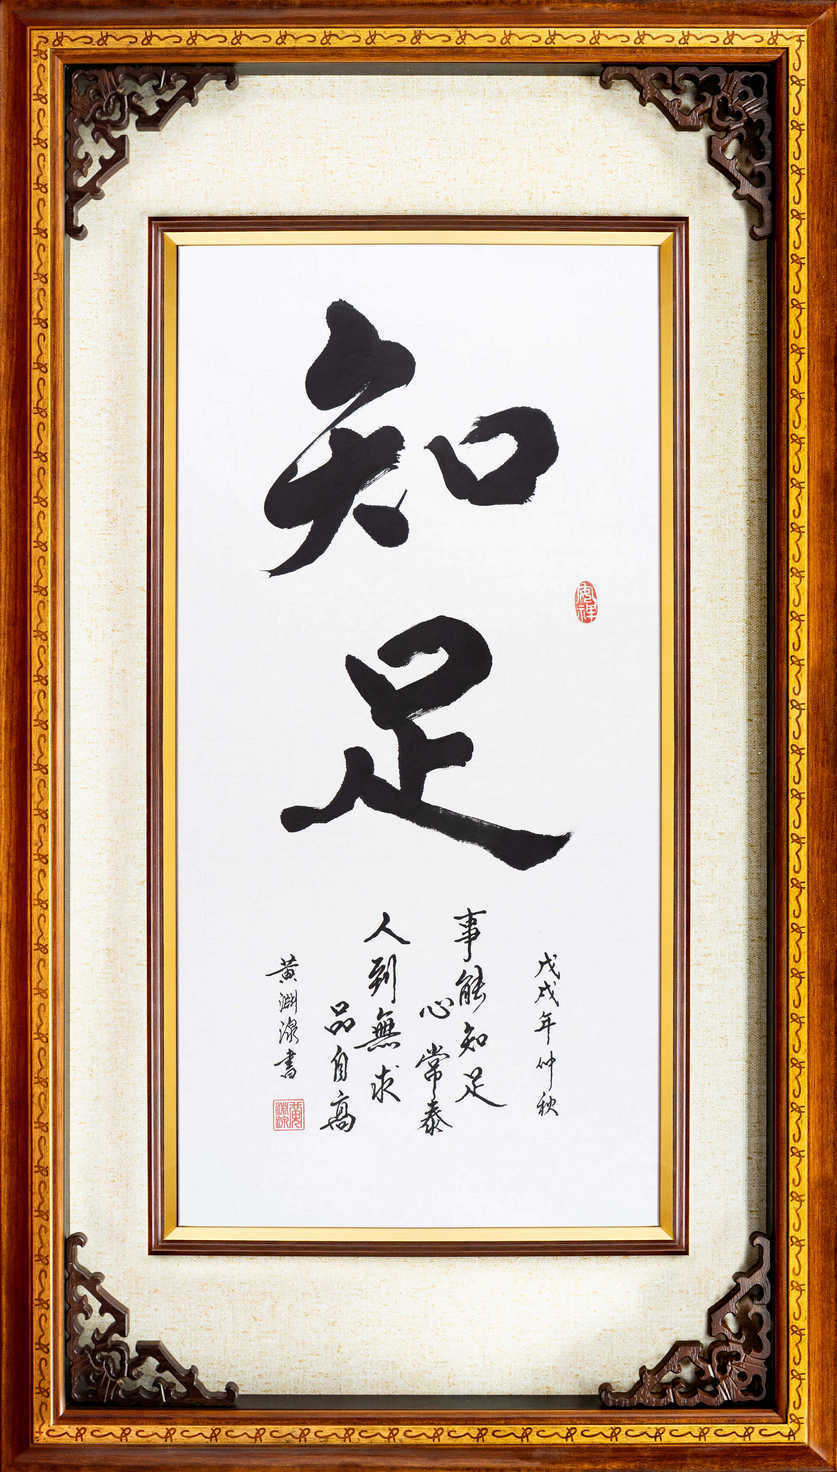 知足
戊戌年仲秋
事能知足
心常泰
人到無求
品自高
黃淵深書